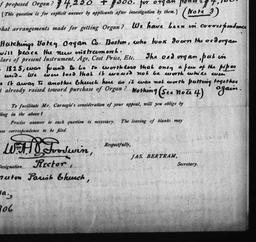 of proposed Organ? $4,250 + $500. for organ
(This question is for explicit answer by applicants after investigation by them.) (Note 3)
hat arrangements made for getting Organ? We have been in correspondence
Hutchings Votey Organ Co. Boston, who took down the old organ
will place the new instrument.
lars of present Instrument, Age, Cost Price, Etc. The old organ, put in
1825, was found to be so worthless that only a few of the pipes
used. We were told that it would not be worth while even
it away to another Church here as it was not worth putting together
t already raised toward purchase of Organ? Nothing (See Note 4) again.
To facilitate Mr. Carnegie's consideration of your appeal, will you oblige by
ling in the above?
Precise answer to each question is necessary. The leaving of blanks may
ean correspondence to be filed.
Respectfully,
W.A.R. Goodwin,
JAS. BERTRAM,
Secretary.
esignation Rector,
ruton Parish Church,
Va.,
906